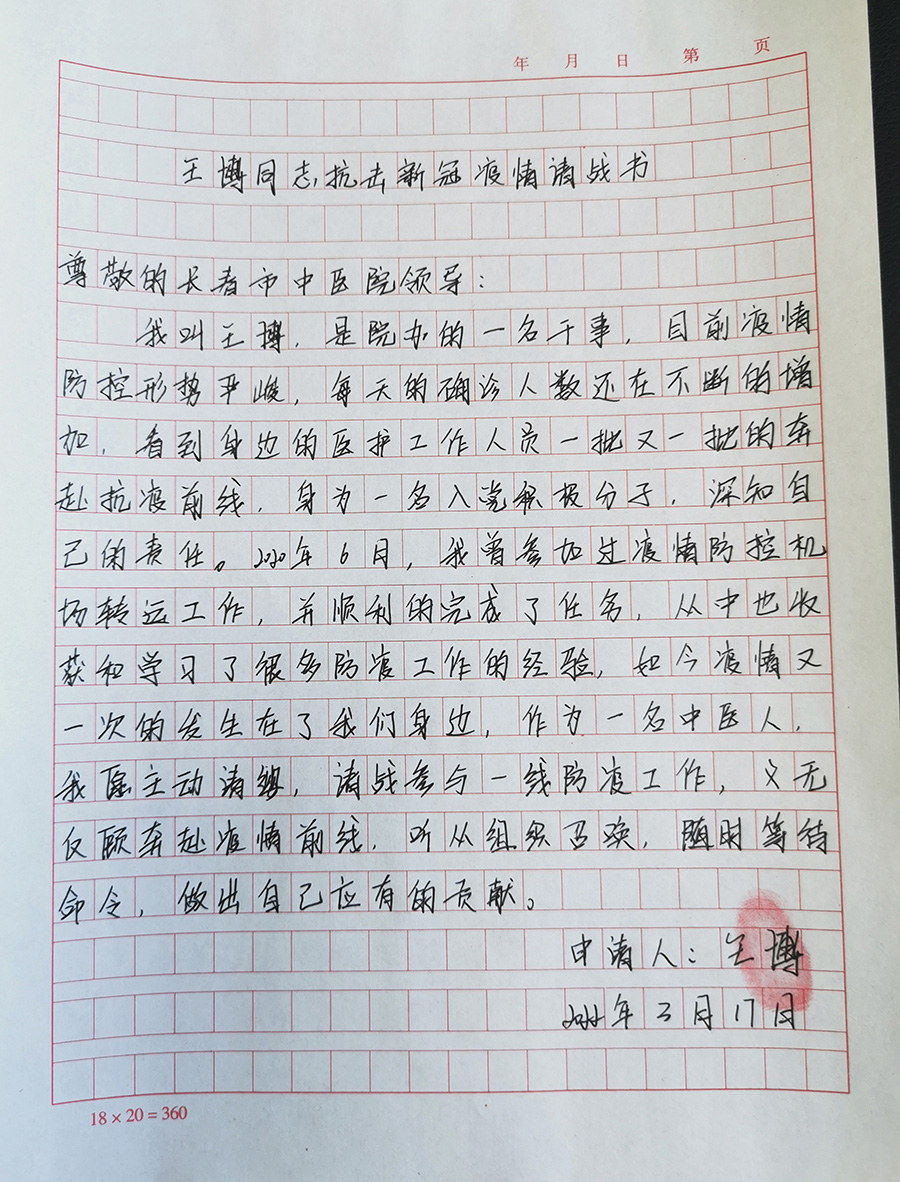 年 月 日 第 页
王博同志抗击新冠疫情请战书
尊敬的长春市中医院领导：
我叫王博，是院办的一名干事，目前疫情
防控形势严峻，每天的确诊人数还在不断的增
加，看到身边的医护工作人员一批又一批的奔
赴抗疫前线，身为一名入党积极分子，深知自
己的责任。2020年6月，我曾参加过疫情防控机
场转运工作，并顺利的完成了任务，从中也收
获和学习了很多防疫工作的经验，如今疫情又
一次的发生在了我们身边，作为一名中医人，
我愿主动请缨，请战参与一线防疫工作，义无
反顾奔赴疫情前线，听从组织召唤，随时等待
命令，做出自己应有的贡献。
申请人：王博
2022年3月17日
18×20=360